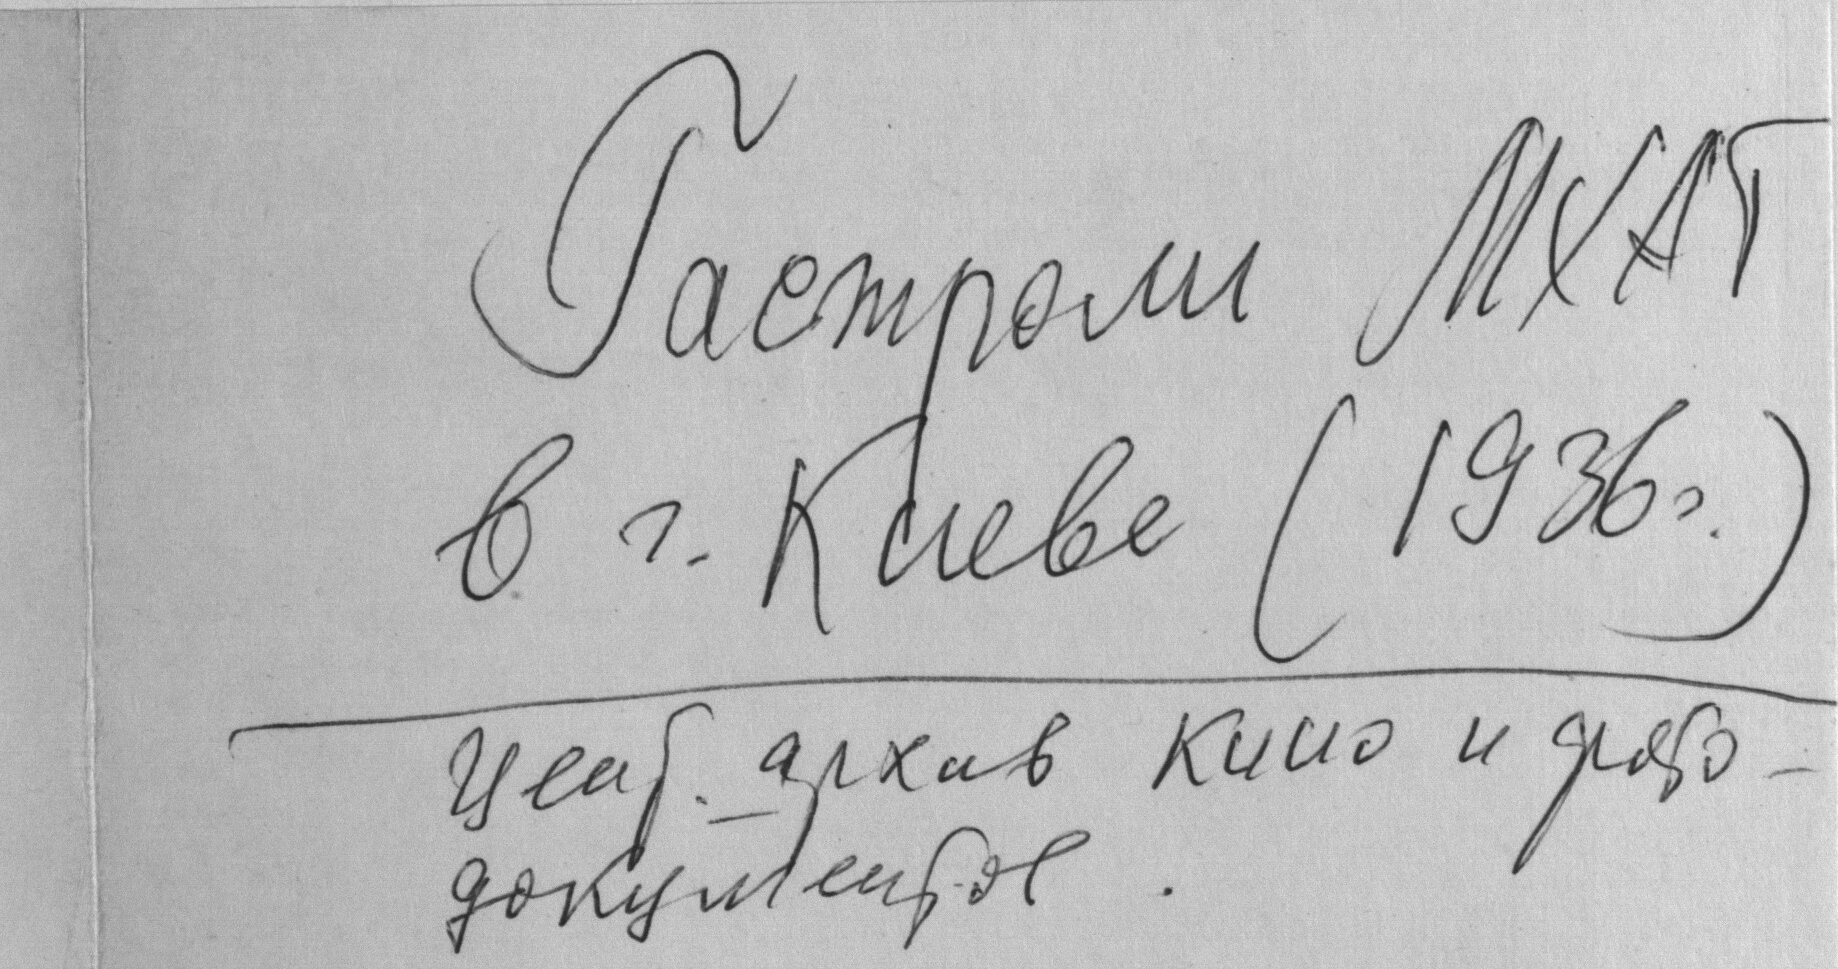 Гастроли МХАТ
в г. Киеве (1936 г.)
Цент. архив кино и фото-
документов.